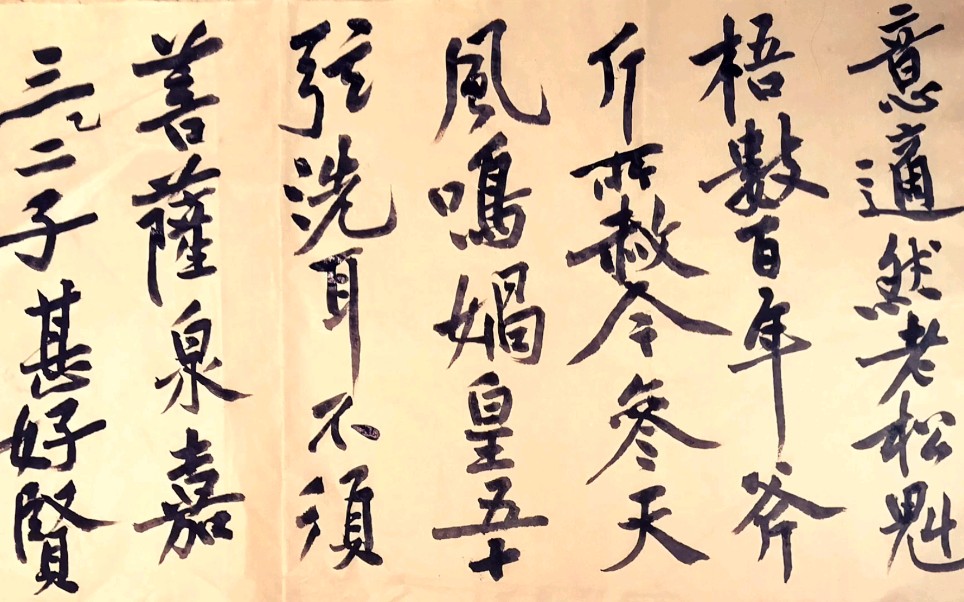 意適然老松魁
梧數百年斧
斤所赦今參天
風鳴媧皇五十
弦洗耳不須
菩薩泉嘉
三二子甚好賢